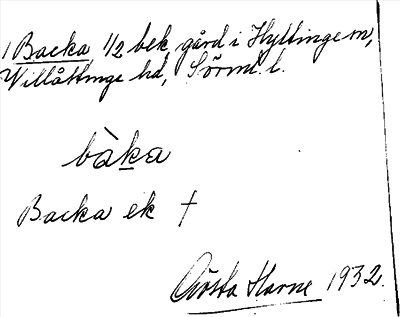 1 Backa 1/2 bek. gård i Hyltinge sn,
Villåttinge hd, Sörml. l.
bàka
Backa ek †
Gösta Harne 1932.